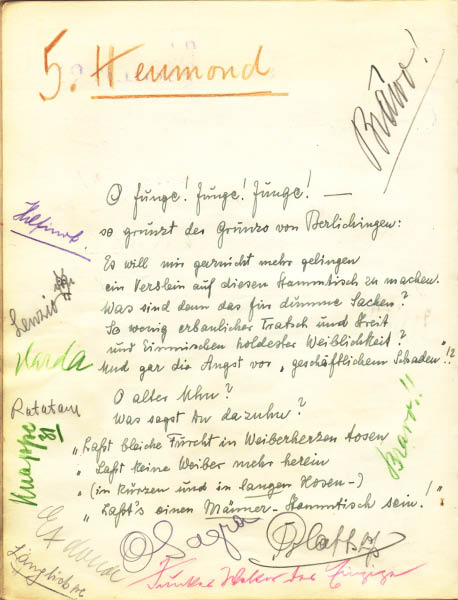 5. Heumond
Bravo!
O Junge! Junge! Junge! —
so grunzt der Grunzo von Berlichingen:
Es will mir garnicht mehr gelingen
ein Verslein auf diesen Stammtisch zu machen.
Was sind denn das für dumme Sachen?
So wenig erbaulicher Tratsch und Streit
und Einmischen holdester Weiblichkeit?
Und gar die Angst vor „geschäftlichem Schaden"!?
O alter Uhu?
Was sagst Du dazuhu?
„Laßt bleiche Furcht in Weiberherzen tosen
„Laßt keine Weiber mehr herein
„(in kurzen und in langen Hosen-)
„Laßt's einen Männer-Stammtisch sein!"
Bravo!!
Harda
Ratatam
Knappe